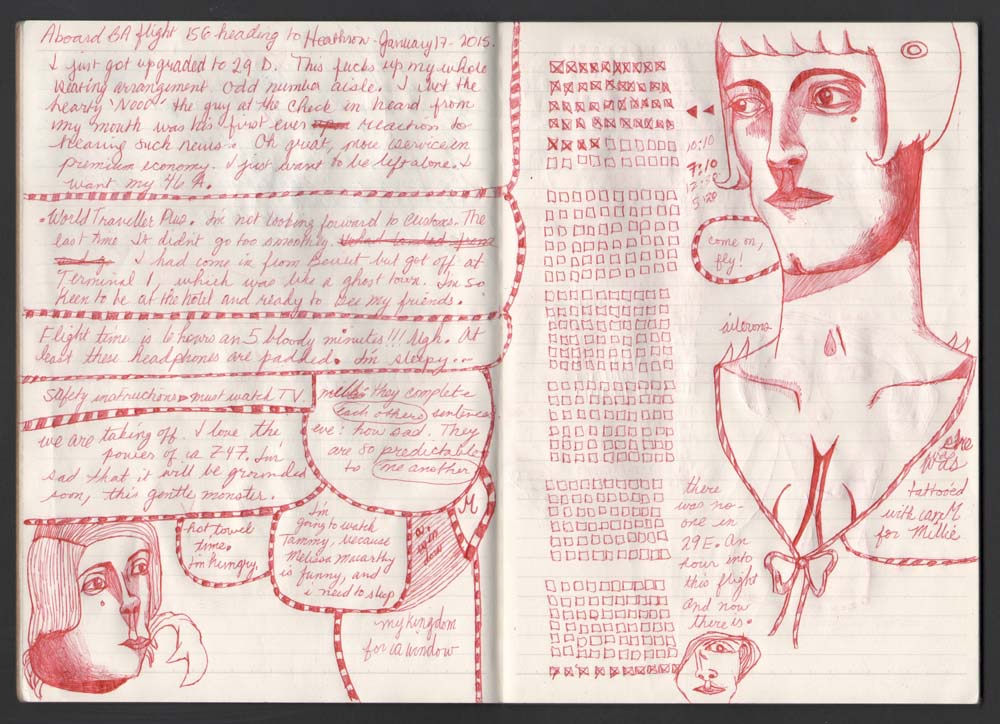 Aboard BA flight 156 heading to Heathrow - January 17 - 2015.
I just got upgraded to 29 D. This fucks up my whole
seating arrangement. Odd number aisle. I bet the
hearty "NOOO" the guy at the check in heard from
my mouth was his first ever reaction to
hearing such news. Oh great, more service in
premium economy. I just want to be left alone. I
want my 46 A.
• World Traveller Plus. I'm not looking forward to customs. The
last time. It didn't go too smoothly.
I had come in from Beirut but got off at
Terminal 1, which was like a ghost town. I'm so
keen to be at the hotel and ready to see my friends.
Flight time is 6 hours an 5 bloody minutes!!! Ugh. At
least these headphones are padded. I'm sleepy...
Safety instructions must watch TV.
we are taking off. I love the
power of a 747. I'm
sad that it will be grounded
soon, this gentle monster.
millie: they complete
each others sentences
eve: how sad. They
are so predictable
to one another
hot towel
time.
I'm hungry.
I'm
going to watch
Tammy, because
Melissa mccarthy
is funny, and
i need to sleep
M
my kingdom
for a window
10:10
7:10
come on,
fly!
ailerons
she
was
tattooed
with care M
for Millie
there
was no-
one in
29 E. An
hour into
this flight
And now
there is.